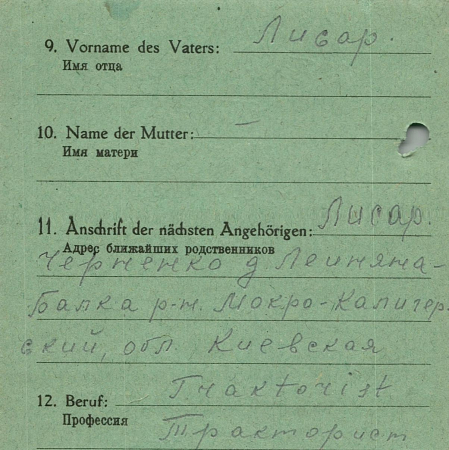 9. Vorname des Vaters: Лисар.
Имя отца
10. Name der Mutter: —
Имя матери
11. Anschrift der nächsten Angehörigen: Лисар.
Адрес ближайших родственников
Черненко д. Леиняна-
Балка р-н. Мокро-Калигер-
ский, обл. Киевская
12. Beruf: Traktorist
Профессия Тракторист